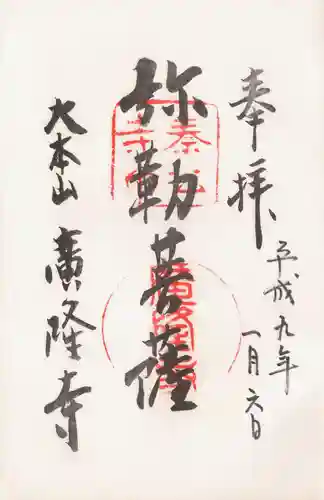 奉拝
平成九年
一月六日
弥勒菩薩
大本山 廣隆寺